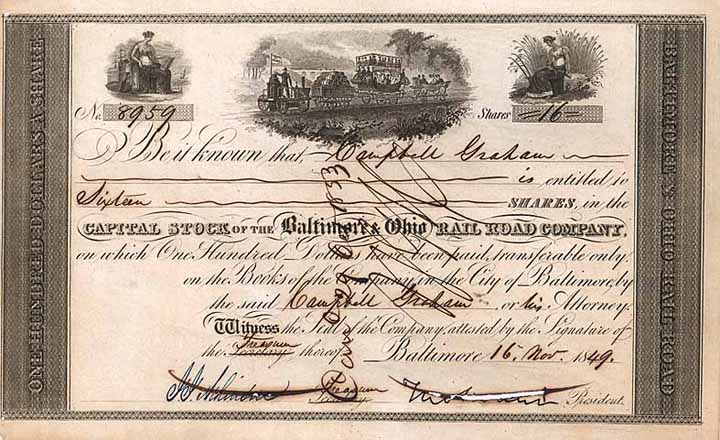 ONE HUNDRED DOLLARS A SHARE
No. 8959
Shares -16-
Be it known that, Campbell Graham
is entitled to
Sixteen SHARES, in the
CAPITAL STOCK OF THE Baltimore & Ohio RAIL ROAD COMPANY,
on which One Hundred Dollars have been paid, transferable only
on the Books of the Company, in the City of Baltimore, by
the said Campbell Graham or his Attorney.
Witness the Seal of the Company, attested by the Signature of
Treasurer
the Secretary thereof Baltimore 16, Nov. 1849.
Treasurer
Secretary President.
BALTIMORE & OHIO RAIL ROAD